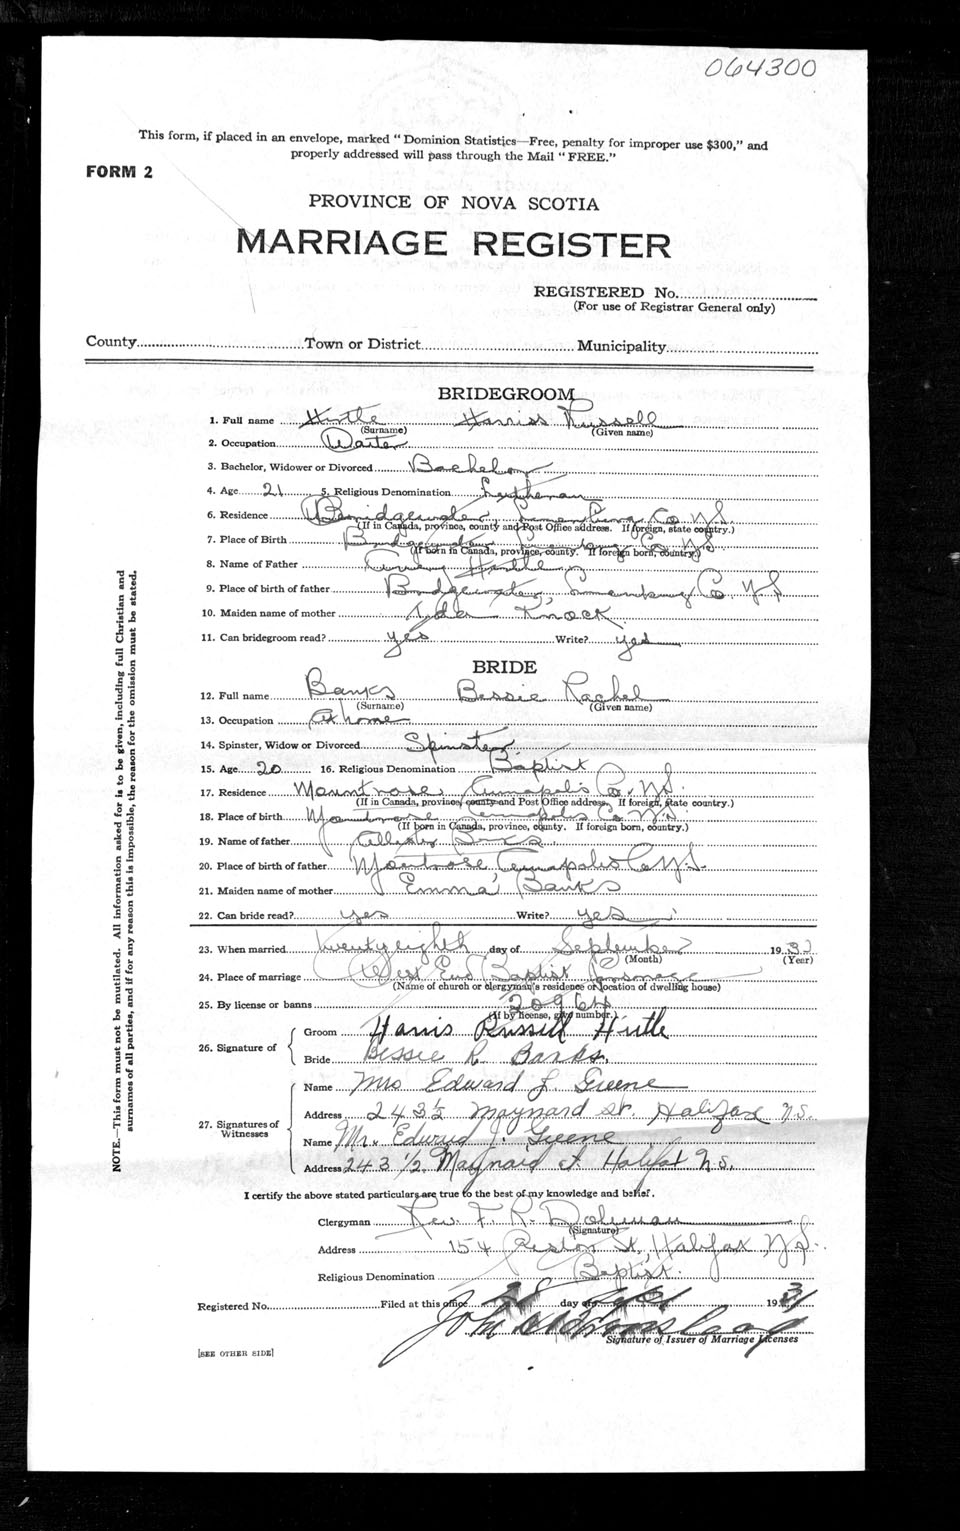 064300
This form, if placed in an envelope, marked "Dominion Statistics—Free, penalty for improper use $300," and
properly addressed will pass through the Mail "FREE."
FORM 2
PROVINCE OF NOVA SCOTIA
MARRIAGE REGISTER
REGISTERED No.
(For use of Registrar General only)
County Town or District Municipality
BRIDEGROOM
1. Full name Hirtle Harriss Russell
(Surname) (Given name)
2. Occupation Waiter
3. Bachelor, Widower or Divorced Bachelor
4. Age 21 5. Religious Denomination Lutheran
6. Residence Bridgewater, Lunenburg Co N.S.
(If in Canada, province, county and Post Office address. If foreign, state country.)
7. Place of Birth Bridgewater Lunenburg Co N.S.
(If born in Canada, province, county. If foreign born, country.)
8. Name of Father Hirtle
9. Place of birth of father Bridgewater, Lunenburg Co N.S.
10. Maiden name of mother Ida Knock
11. Can bridegroom read? yes Write? yes
BRIDE
12. Full name Banks Bessie Rachel
(Surname) (Given name)
13. Occupation At home
14. Spinster, Widow or Divorced Spinster
15. Age 20 16. Religious Denomination Baptist
17. Residence Mountrose, Annapolis Co. N.S.
(If in Canada, province, county and Post Office address. If foreign, state country.)
18. Place of birth Mountrose Annapolis Co N.S.
(If born in Canada, province, county. If foreign born, country.)
19. Name of father Banks
20. Place of birth of father Montrose Annapolis Co N.S.
21. Maiden name of mother Emma Banks
22. Can bride read? yes Write? yes
23. When married Twenty eighth day of September 19
(Month) (Year)
24. Place of marriage West End Baptist Parsonage
(Name of church or clergyman's residence or location of dwelling house)
25. By license or banns 20964
(If by license, give number.)
26. Signature of
Groom Harris Russell Hirtle
Bride Bessie R. Banks
27. Signatures of Witnesses
Name Mrs Edward J. Greene
Address 243½ Maynard St. Halifax N.S.
Name Mr. Edward J. Greene
Address 243 1/2 Maynard St Halifax N.S.
I certify the above stated particulars are true to the best of my knowledge and belief.
Clergyman Rev. F. R. Dohman
(Signature)
Address 154 St, Halifax N.S.
Religious Denomination Baptist.
Registered No. Filed at this office day of 19
John
Signature of Issuer of Marriage Licenses
[SEE OTHER SIDE]
NOTE.—This form must not be mutilated. All information asked for is to be given, including full Christian and
surnames of all parties, and if for any reason this is impossible, the reason for the omission must be stated.